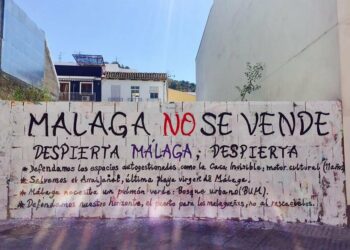 MALAGA NO SE VENDE
DESPIERTA MÁLAGA, DESPIERTA
* Defendamos los espacios autogestionados, como la Casa Invisible, motor cultural
* Salvemos el Arraijanal, última playa virgen de Málaga.
* Málaga necesita un pulmón verde: Bosque urbano (BUM).
* Defendamos nuestro horizonte, el puerto para los malagueños, no al rascacielos.